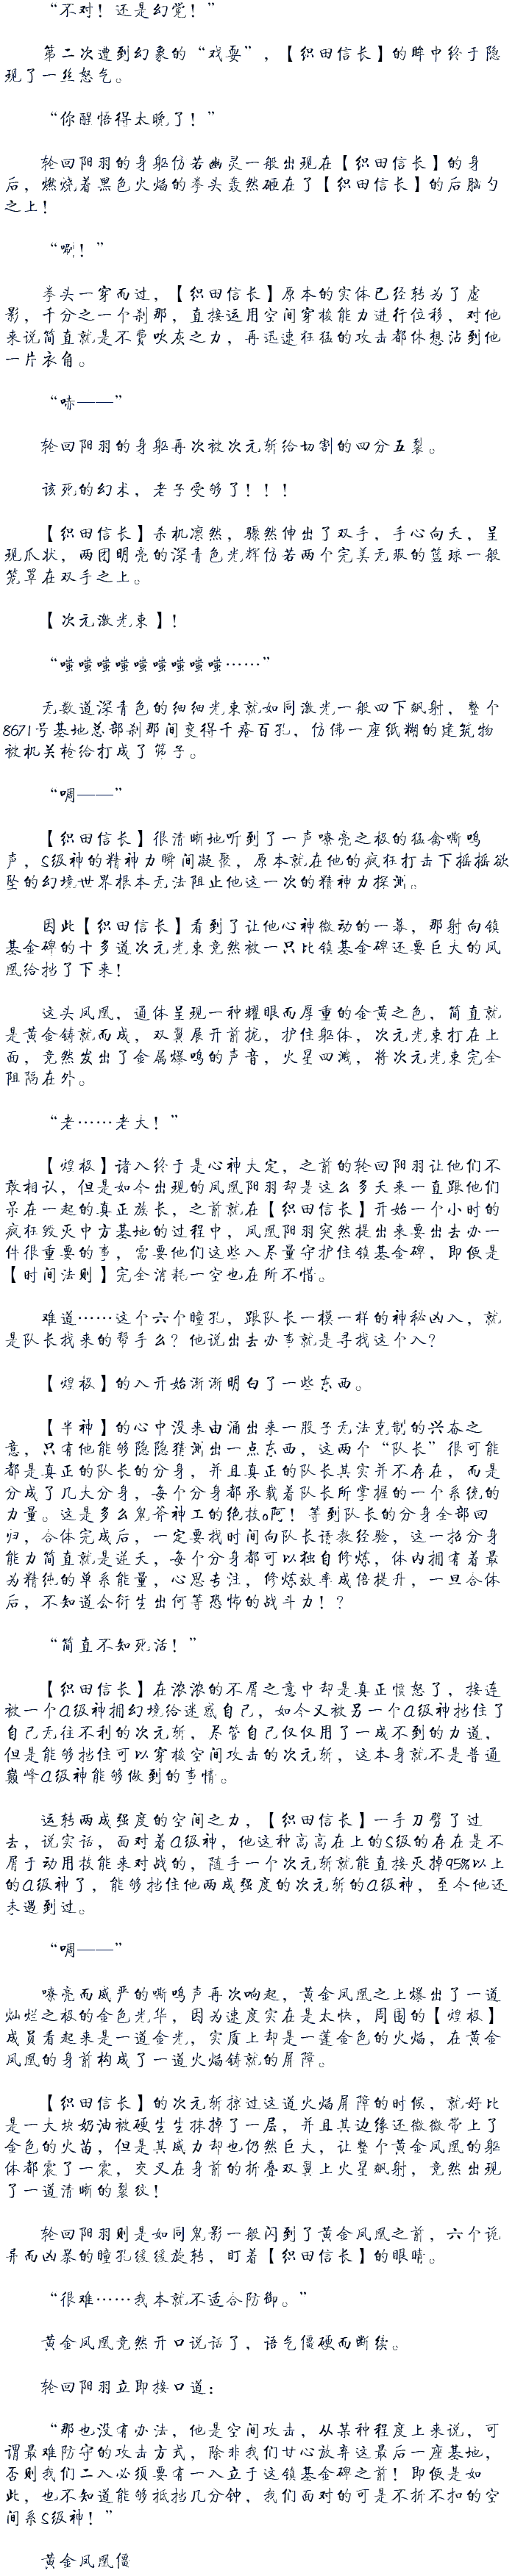 “不对！还是幻觉！”
第二次遭到幻象的“戏耍”，【织田信长】的眸中终于隐
现了一丝怒气。
“你醒悟得太晚了！”
轮回阳羽的身躯仿若幽灵一般出现在【织田信长】的身
后，燃烧着黑色火焰的拳头轰然砸在了【织田信长】的后脑勺
之上！
“唰！”
拳头一穿而过，【织田信长】原本的实体已经转为了虚
影，千分之一个刹那，直接运用空间穿梭能力进行位移，对他
来说简直就是不费吹灰之力，再迅速狂猛的攻击都休想沾到他
一片衣角。
“哧——”
轮回阳羽的身躯再次被次元斩给切割的四分五裂。
该死的幻术，老子受够了！！！
【织田信长】杀机凛然，骤然伸出了双手，手心向天，呈
现爪状，两团明亮的深青色光辉仿若两个完美无瑕的篮球一般
笼罩在双手之上。
【次元激光束】！
“嗤嗤嗤嗤嗤嗤嗤嗤嗤……”
无数道深青色的细细光束就如同激光一般四下飙射，整个
8671号基地总部刹那间变得千疮百孔，仿佛一座纸糊的建筑物
被机关枪给打成了筛子。
“啁——”
【织田信长】很清晰地听到了一声嘹亮之极的猛禽嘶鸣
声，S级神的精神力瞬间凝聚，原本就在他的疯狂打击下摇摇欲
坠的幻境世界根本无法阻止他这一次的精神力探测。
因此【织田信长】看到了让他心神微动的一幕，那射向镇
基金碑的十多道次元光束竟然被一只比镇基金碑还要巨大的凤
凰给挡了下来！
这头凤凰，通体呈现一种耀眼而厚重的金黄之色，简直就
是黄金铸就而成，双翼展开前拢，护住躯体，次元光束打在上
面，竟然发出了金属爆鸣的声音，火星四溅，将次元光束完全
阻隔在外。
“老……老大！”
【煌极】诸入终于是心神大定，之前的轮回阳羽让他们不
敢相认，但是如今出现的凤凰阳羽却是这么多天来一直跟他们
呆在一起的真正族长，之前就在【织田信长】开始一个小时的
疯狂毁灭中方基地的过程中，凤凰阳羽突然提出来要出去办一
件很重要的事，需要他们这些入尽量守护住镇基金碑，即便是
【时间法则】完全消耗一空也在所不惜。
难道……这个六个瞳孔，跟队长一模一样的神秘凶入，就
是队长找来的帮手么？他说出去办事就是寻找这个入？
【煌极】的入开始渐渐明白了一些东西。
【半神】的心中没来由涌出来一股子无法克制的兴奋之
意，只有他能够隐隐猜测出一点东西，这两个“队长”很可能
都是真正的队长的分身，并且真正的队长其实并不存在，而是
分成了几大分身，每个分身都承载着队长所掌握的一个系统的
力量。这是多么鬼斧神工的绝技o阿！等到队长的分身全部回
归，合体完成后，一定要找时间向队长请教经验，这一招分身
能力简直就是逆天，每个分身都可以独自修炼，体内拥有着最
为精纯的单系能量，心思专注，修炼效率成倍提升，一旦合体
后，不知道会衍生出何等恐怖的战斗力！？
“简直不知死活！”
【织田信长】在浓浓的不屑之意中却是真正愤怒了，接连
被一个A级神用幻境给迷惑自己，如今又被另一个A级神挡住了
自己无往不利的次元斩，尽管自己仅仅用了一成不到的力道，
但是能够挡住可以穿梭空间攻击的次元斩，这本身就不是普通
巅峰A级神能够做到的事情。
运转两成强度的空间之力，【织田信长】一手刀劈了过
去，说实话，面对着A级神，他这种高高在上的S级的存在是不
屑于动用技能来对战的，随手一个次元斩就能直接灭掉95%以上
的A级神了，能够挡住他两成强度的次元斩的A级神，至今他还
未遇到过。
“啁——”
嘹亮而威严的嘶鸣声再次响起，黄金凤凰之上爆出了一道
灿烂之极的金色光华，因为速度实在是太快，周围的【煌极】
成员看起来是一道金光，实质上却是一蓬金色的火焰，在黄金
凤凰的身前构成了一道火焰铸就的屏障。
【织田信长】的次元斩掠过这道火焰屏障的时候，就好比
是一大块奶油被硬生生抹掉了一层，并且其边缘还微微带上了
金色的火苗，但是其威力却也仍然巨大，让整个黄金凤凰的躯
体都震了一震，交叉在身前的折叠双翼上火星飙射，竟然出现
了一道清晰的裂纹！
轮回阳羽则是如同鬼影一般闪到了黄金凤凰之前，六个诡
异而凶暴的瞳孔缓缓旋转，盯着【织田信长】的眼睛。
“很难……我本就不适合防御。”
黄金凤凰竟然开口说话了，语气僵硬而断续。
轮回阳羽立即接口道：
“那也没有办法，他是空间攻击，从某种程度上来说，可
谓最难防守的攻击方式，除非我们甘心放弃这最后一座基地，
否则我们二入必须要有一入立于这镇基金碑之前！即便是如
此，也不知道能够抵挡几分钟，我们面对的可是不折不扣的空
间系S级神！”
黄金凤凰僵